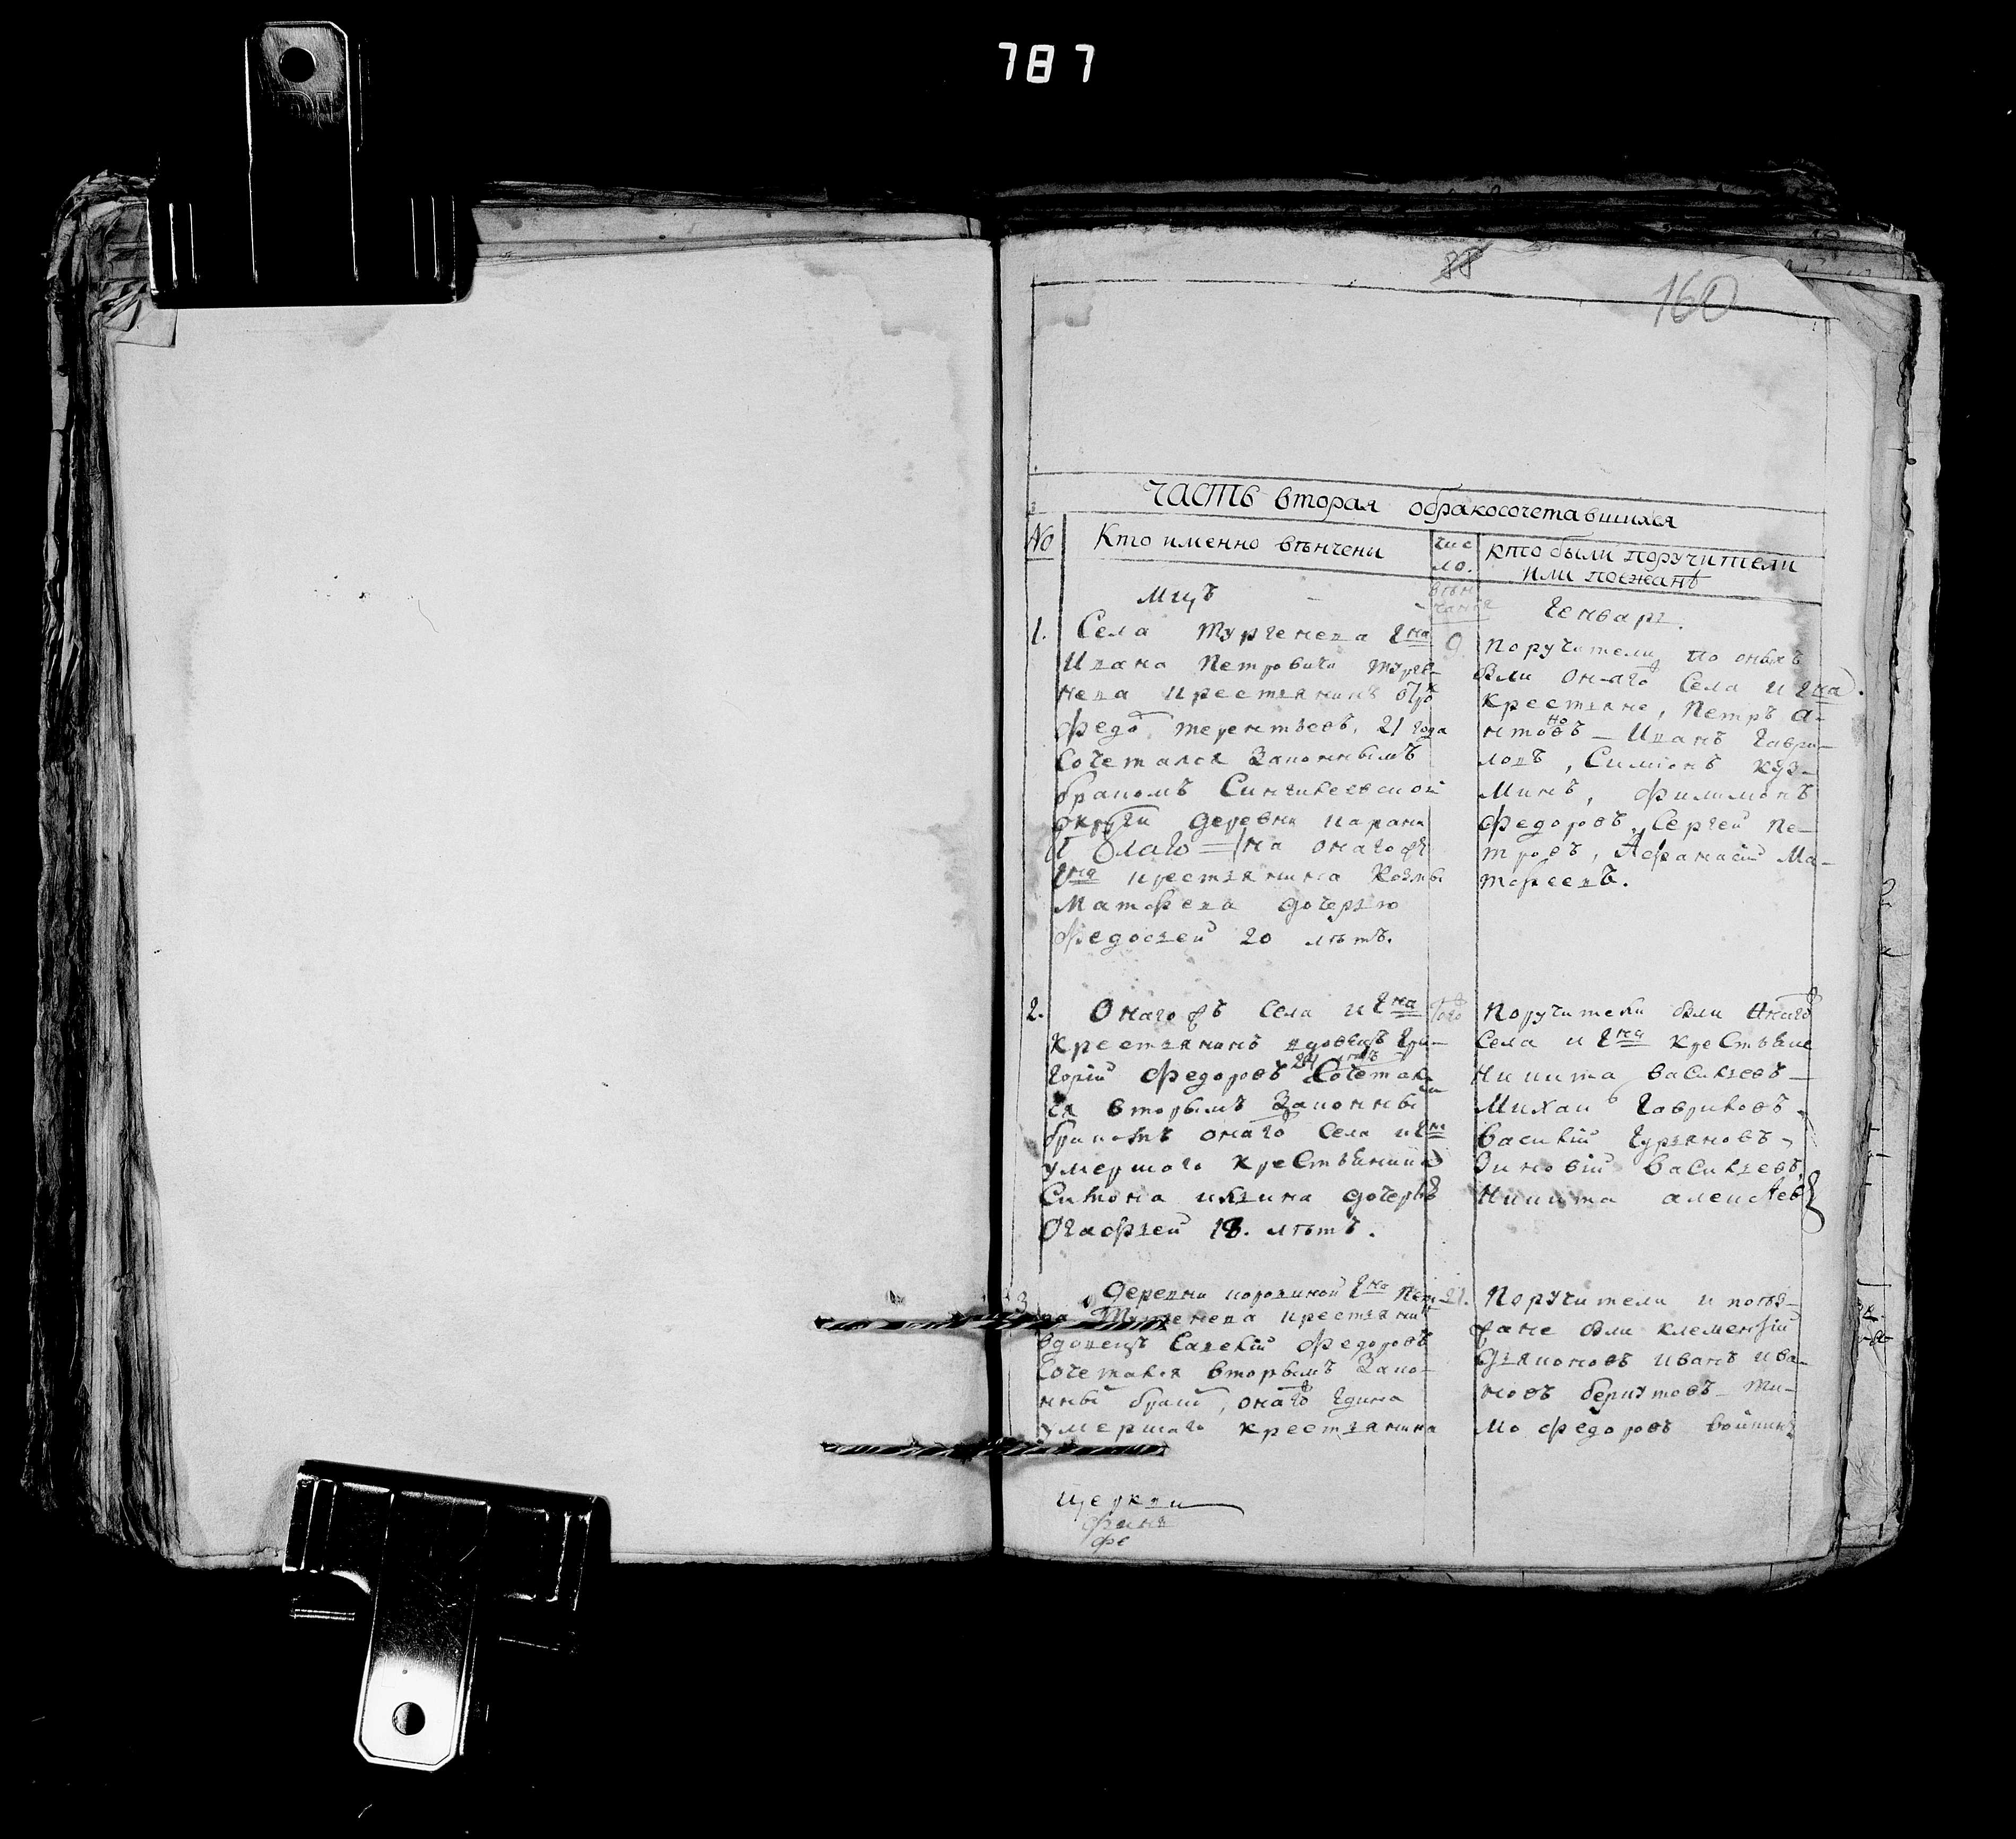 787
88
160
часть вторая обракосочетавшихся
No
Кто именно вѣнчены
чис
ло.
вѣн
чанїя
кто были поручители
или поежанѣ
Мцъ
Генварь.
1.
Села Тургенева Гна
Ивана Петровича Турге-
нева крестьянинъ
Федо Терентьевъ, 21 года
Сочетался Законнымъ
бракомъ
округи деревни
на онагожъ
Гна крестьянина Козмы
Матфева дочерью
Федосьей 20 лѣтъ.
9.
поручители по оныхъ
были онаго Села и Гна
крестьяне, Петръ а-
нтоновъ - Иванъ Гаври-
ловъ, Симионъ куз-
Минъ, Филимонъ
Федоровъ, Сергей Пе-
тровъ, Афанасий Ма-
тфеевъ.
2.
Онагожъ Села и Гна
крестьянинъ вдовецъ Гри-
горій Федоровъ Сочетал
ся вторымъ Законны
бракомъ онаго Села и Гна
умершаго крестьянина
дочерью
Огафьей 18. лѣтъ.
Поручители были
Села и Гна крестьяне
Никита васильевъ -
Михаи Гавриловъ,
василій Гурьяновъ,
Зиновій васильевъ,
Никита
3
Деревни Гна Пет-
ра Тургенева крестьянин
вдовецъ Савелій Федоровъ
Сочетался вторымъ Зако-
нны брако, онаго Гдина
умершаго крестьянина
21.
Поручители и поѣз-
жане были клементий
иванъ ива-
новъ - Ти-
мо федоровъ
Церкви